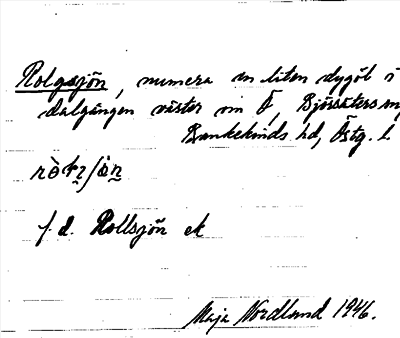 Rolgsjön, numera en liten dygöl i
dalgången väster om Ö, Björsäters
Bankekinds hd, Östg. l
f. d. Rollsjön ek
Maja Nordlund 1946.